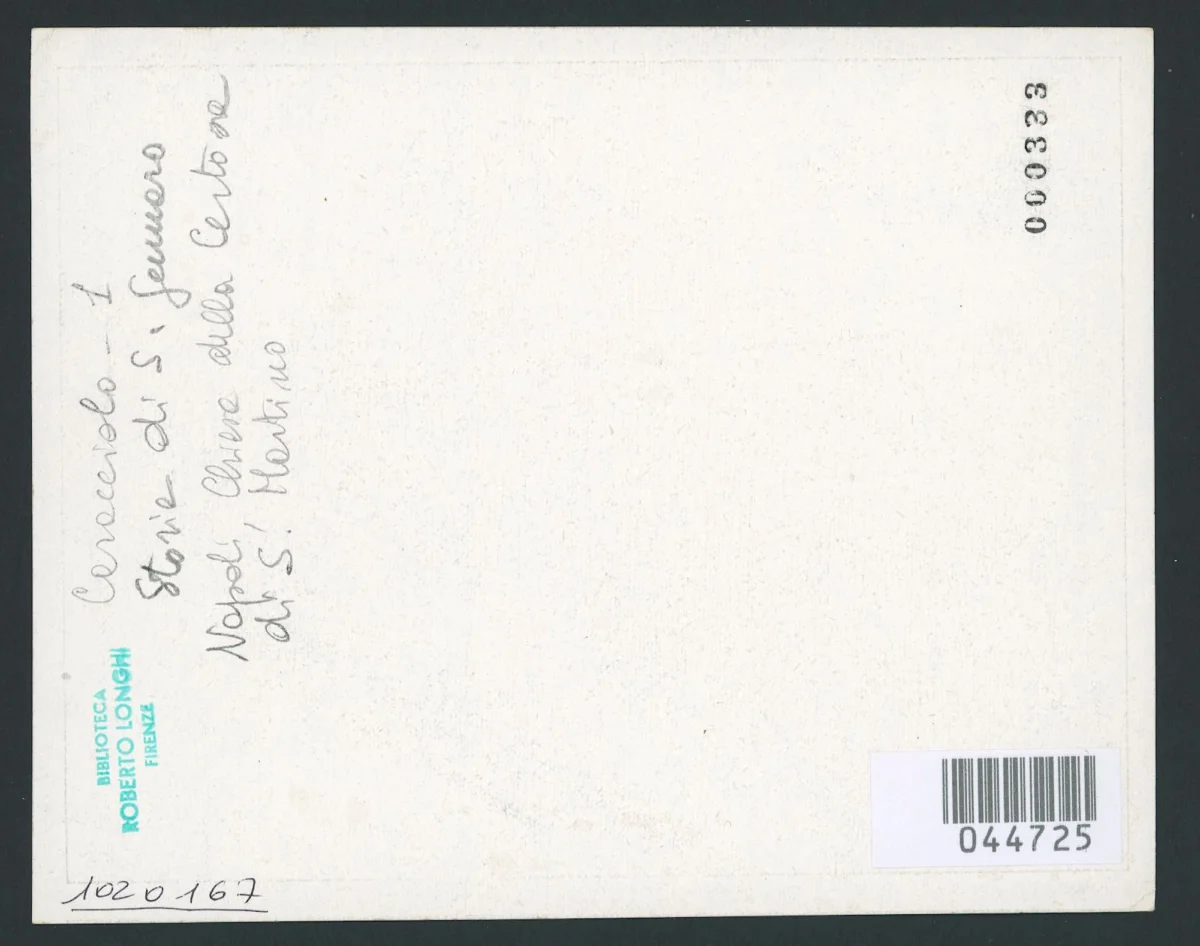 Caracciolo - 1
Storie di S. Gennaro
Napoli Chiesa della Certosa
di S. Martino
BIBLIOTECA
ROBERTO LONGHI
FIRENZE
000333
044725
1020167